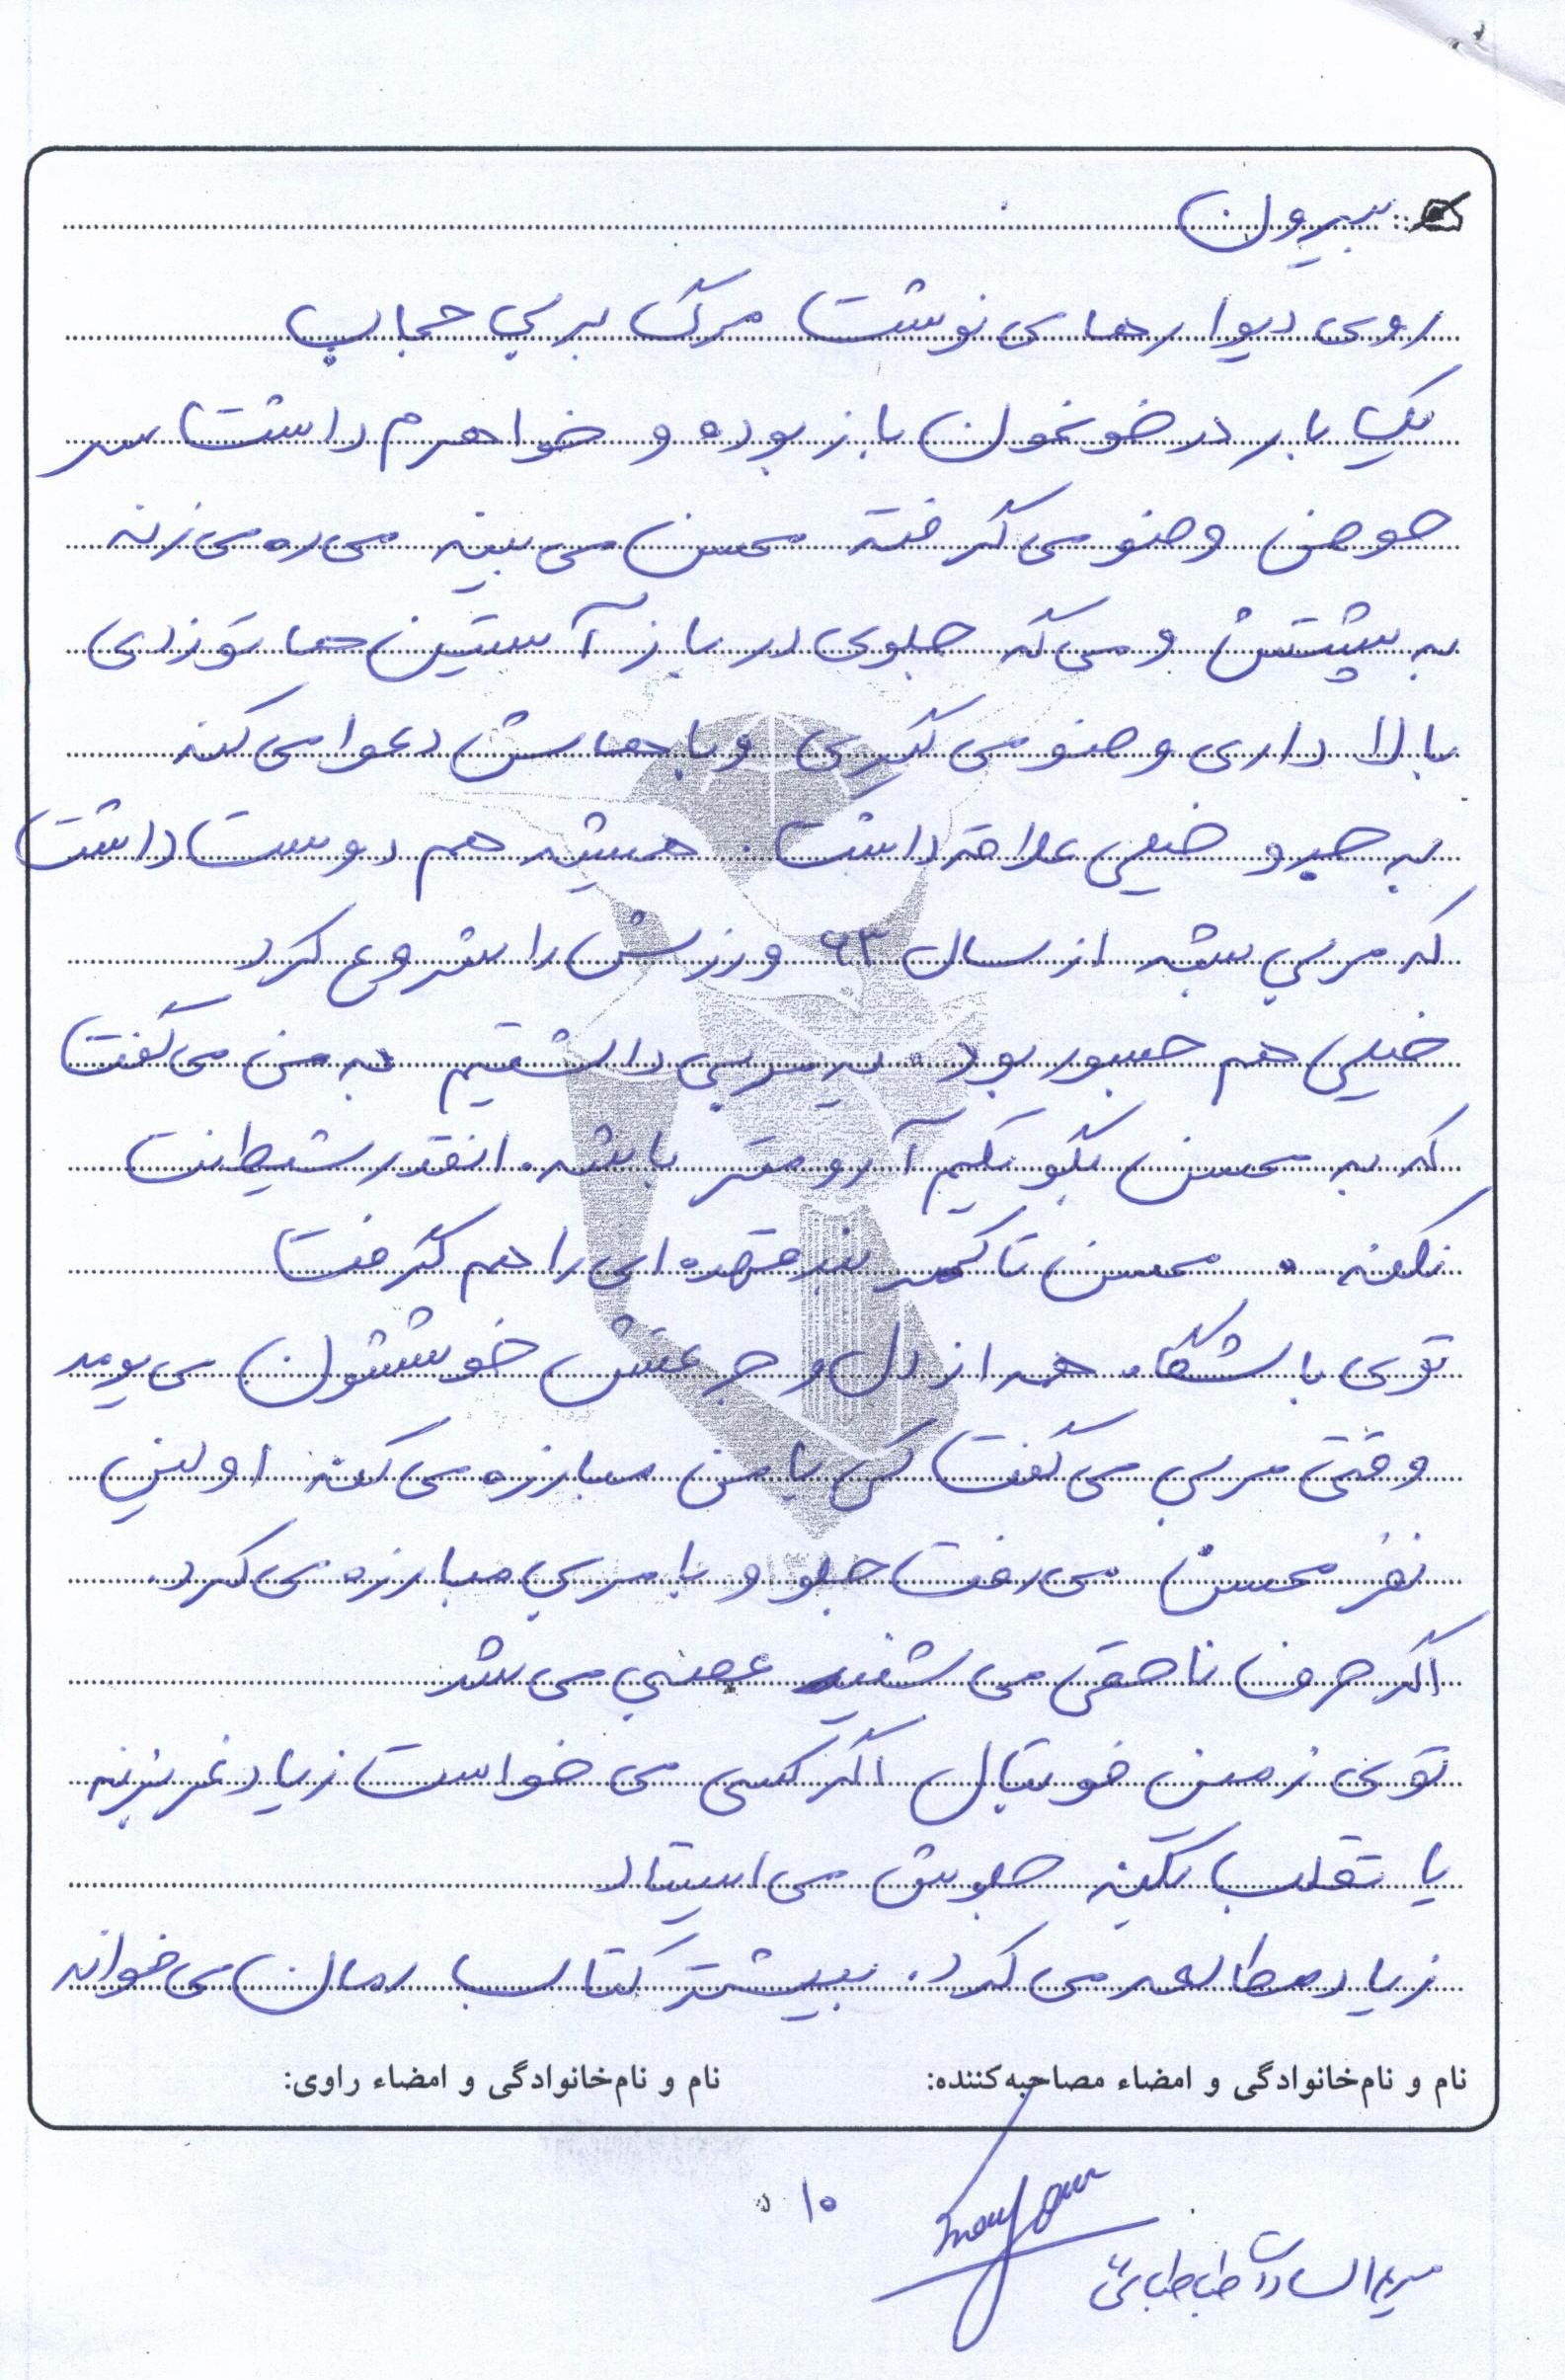 بیرون
روی دیوارها می نوشت مرگ بر بی حجاب
یک بار در خونمون باز بوده و خواهرم داشت سر
حوض وضو می گرفته محسن می بینه می ره می زنه
به پشتش و می گه جلوی در باز آستین ها تو زدی
بالا داری وضو می گیری و باهاش دعوا می کنه
به خیلی علاقه داشت. همیشه هم دوست داشت
که مربی بشه از سال ۶۳ ورزش را شروع کرد
خیلی هم جسور بود. یه مربی داشتیم به من می گفت
که به محسن بگو یکم آرومتر باشه. انقدر شیطنت
نکنه. محسن تا کمربند قهوه ای را هم گرفت
توی باشگاه همه از دل و جرعتش خوششون می یومد
وقتی مربی می گفت کی با من مبارزه می کنه اولین
نفر محسن می رفت جلو و با مربی مبارزه می کرد.
اگر حرف ناحقی می شنید عصبی می شد
توی زمین فوتبال اگر کسی می خواست زیاد غر بزنه
یا تقلب بکنه جلوش می ایستاد
زیاد مطالعه می کرد. بیشتر کتاب رمان می خواند
نام و نام‌خانوادگی و امضاء مصاحبه‌کننده: نام و نام‌خانوادگی و امضاء راوی:
۱۰
مریم السادات طباطبائی